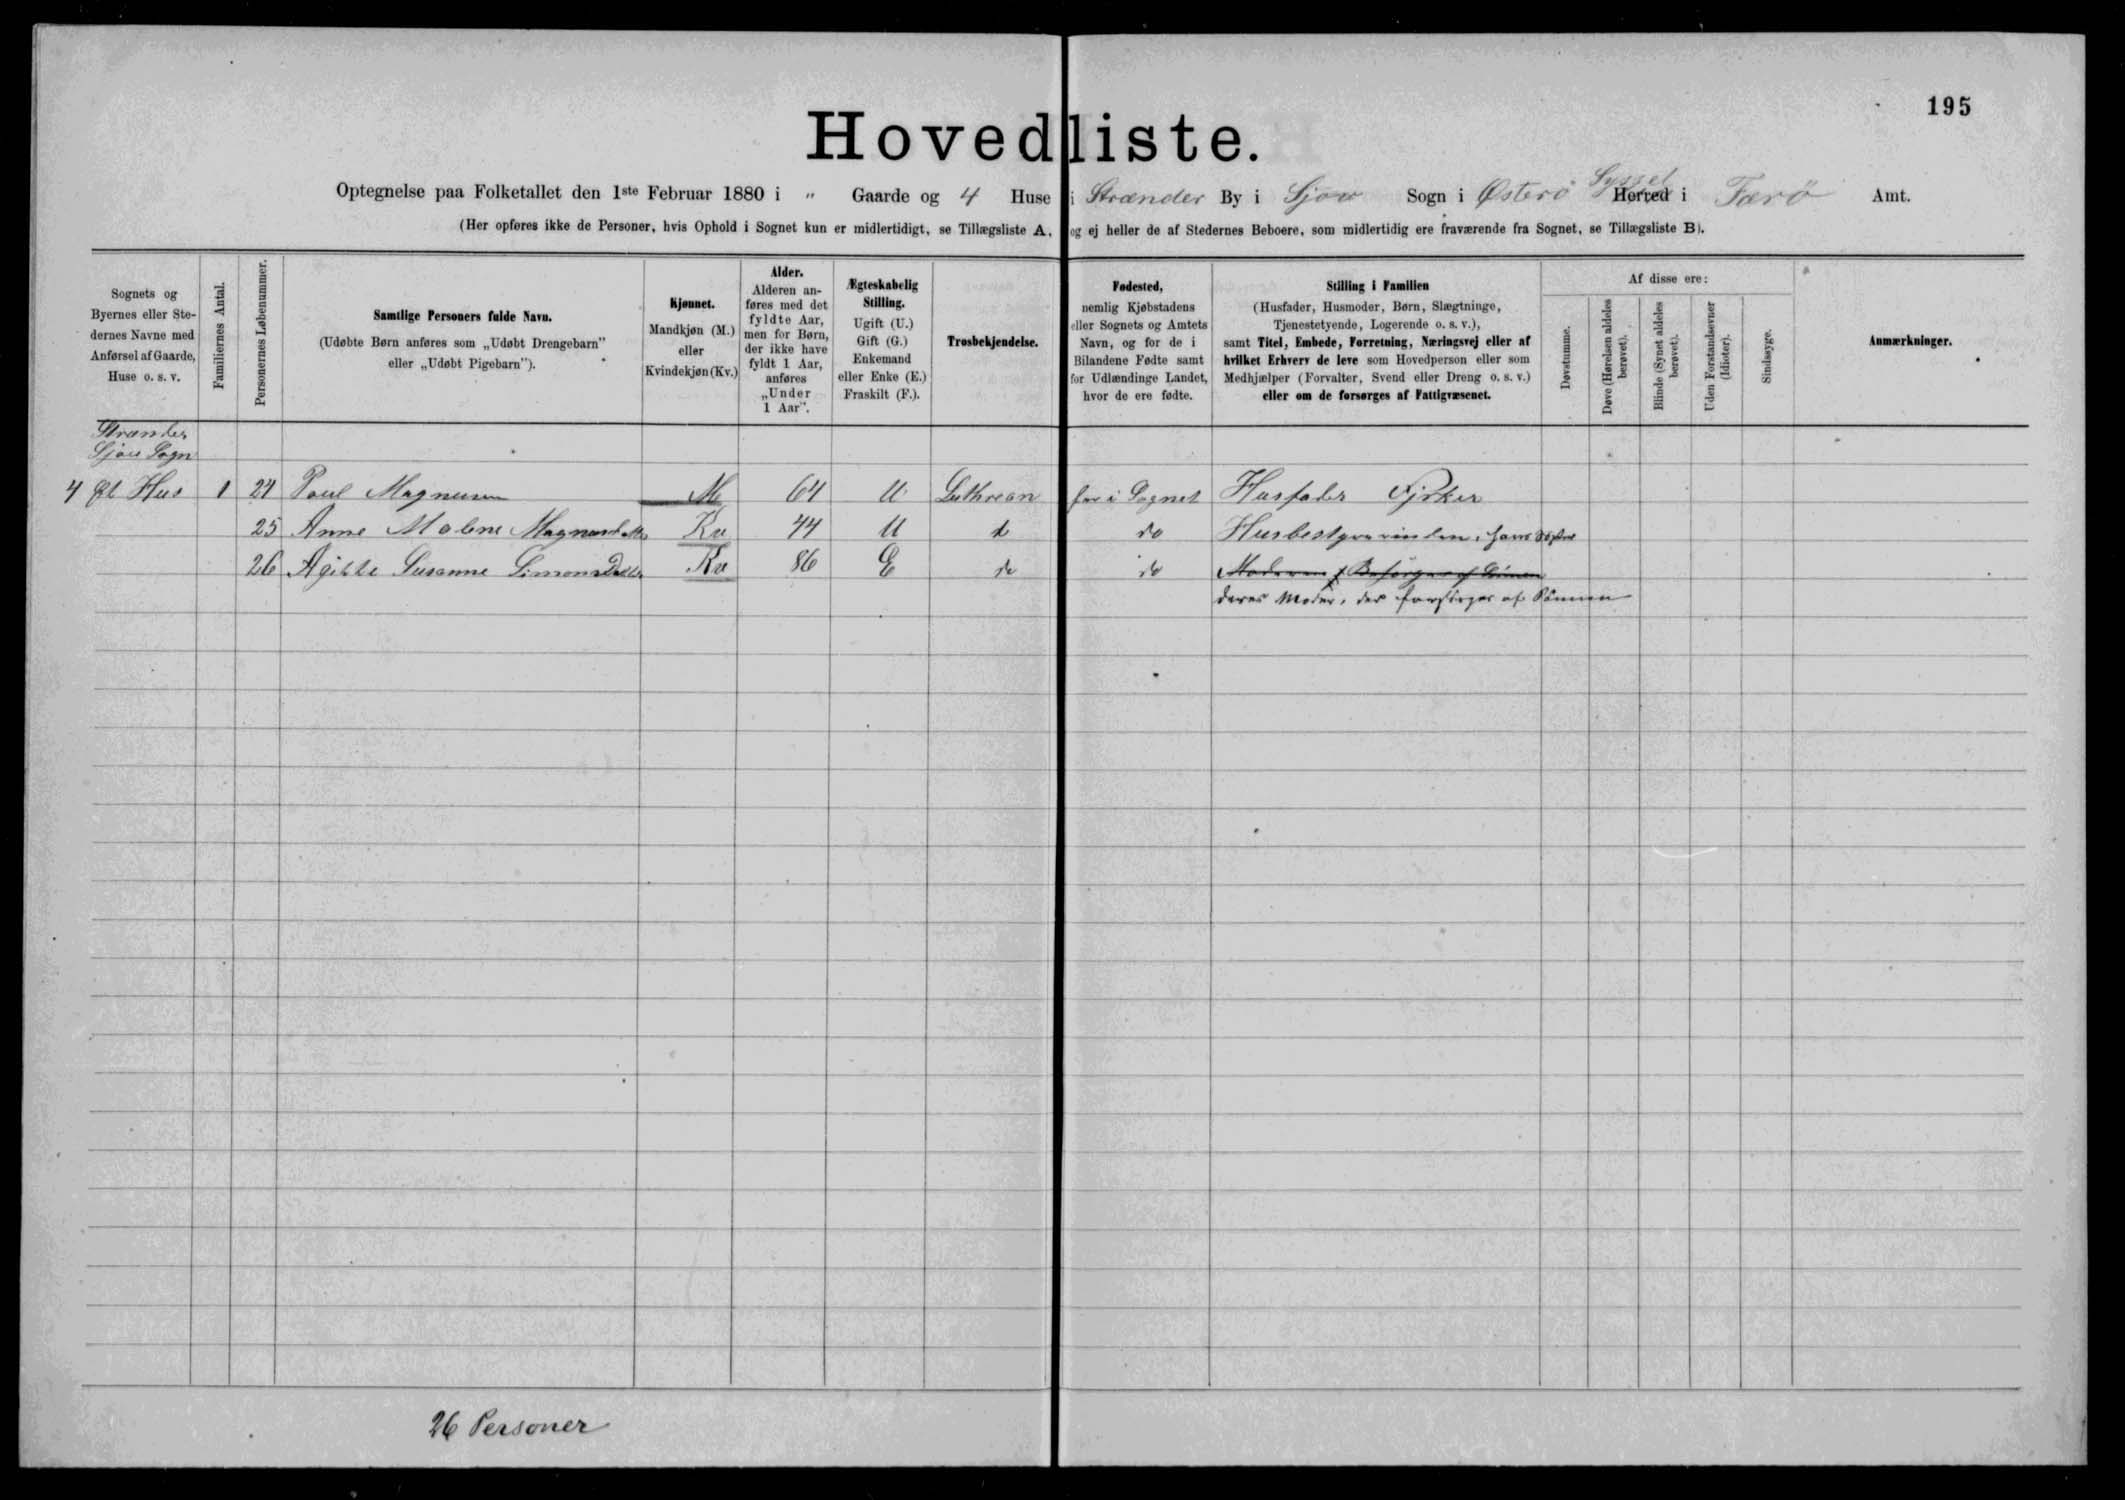 195
Hovedliste.
Optegnelse paa Folketallet den 1ste Februar 1880 i " Gaarde og 4 Huse i Strænder By i Sjov Sogn i Østerø Herred Syssel i Færø Amt.
(Her opføres ikke de Personer, hvis Ophold i Sognet kun er midlertidigt, se Tillægsliste A, og ej heller de af Stedernes Beboere, som midlertidig ere fraværende fra Sognet, se Tillægsliste B).
Sognets og
Byernes eller Ste-
dernes Navne med
Anførsel af Gaarde,
Huse o. s. v.
Familiernes Antal.
Personernes Løbenummer.
Samtlige Personers fulde Navn.
(Udøbte Børn anføres som „Udøbt Drengebarn"
eller „Udøbt Pigebarn").
Kjønnet.
Mandkjøn (M.)
eller
Kvindekjøn (Kv.)
Alder.
Alderen an-
føres med det
fyldte Aar,
men for Børn,
der ikke have
fyldt 1 Aar,
anføres
„Under
1 Aar".
Ægteskabelig
Stilling.
Ugift (U.)
Gift (G.)
Enkemand
eller Enke (E.)
Fraskilt (F.).
Trosbekjendelse.
Fødested,
nemlig Kjøbstadens
eller Sognets og Amtets
Navn, og for de i
Bilandene Fødte samt
for Udlændinge Landet,
hvor de ere fødte.
Stilling i Familien
(Husfader, Husmoder, Børn, Slægtninge,
Tjenestetyende, Logerende o. s. v.),
samt Titel, Embede, Forretning, Næringsvej eller af
hvilket Erhverv de leve som Hovedperson eller som
Medhjælper (Forvalter, Svend eller Dreng o. s. v.)
eller om de forsørges af Fattigvæsenet.
Af disse ere:
Døvstumme.
Døve (Hørelsen aldeles
berøvet).
Blinde (Synet aldeles
berøvet).
Uden Forstandsevner
(Idioter).
Sindssyge.
Anmærkninger.
Strænder
Sjov Sogn
4 Et Hus 1 24 Poul Magnusen M 64 U Luthrean her i Sognet Husfader Fisker
25 Anne Malene Magnusdatter Kv 44 U do do Husbestyrerinden, hans Søster
26 Susanne Simonsdatter Kv 86 E do do Moderen
deres Moder, der forsørges af Sønnen
26 Personer